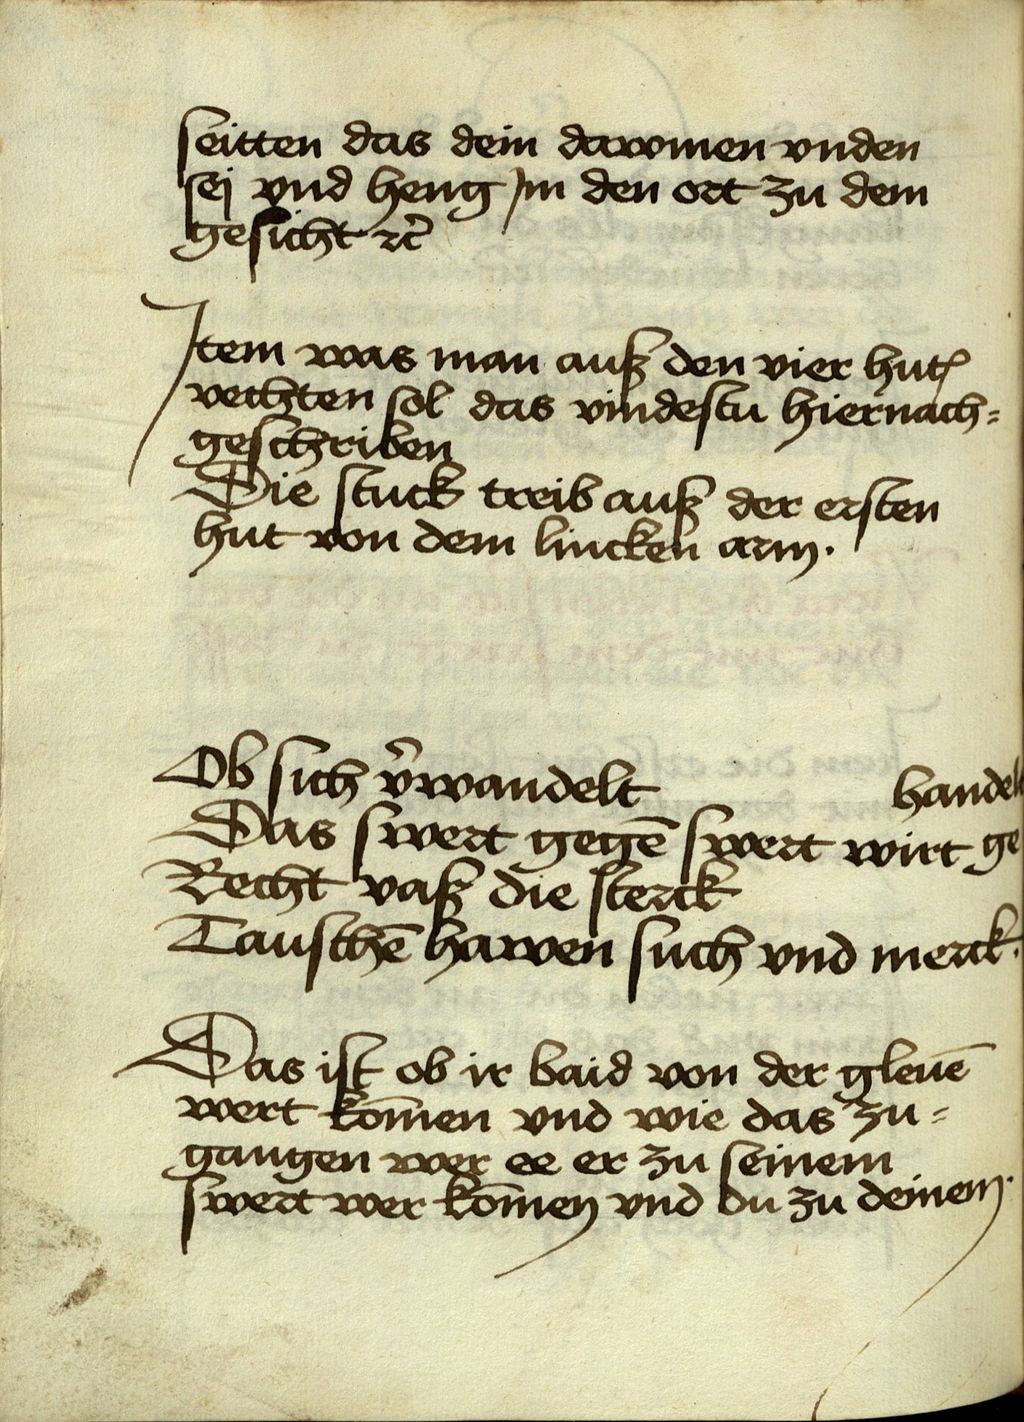 seitten das dein dawmen vnden
sej vnd heng Jm den ort zu dem
gesicht ꝛc̄
Jtem was man auß den vier hutꝭ
vechten sol das vindestu hiernach=
geschriben
Die stuck treib auß der ersten
hut von dem lincken arm.
Ob sich v̄wandelt
handelt
Das swert gegē swert wirt ge
Recht vaß die sterck
Tauschē hawen such vnd merck.
Das ist ob ir baid von der gleuē
wert kōmen vnd wie das zu=
gangen wer ee er zu seinem
swert wer kōmen vnd du zu deinem.